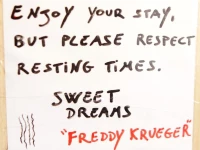 ENJOY YOUR STAY,
BUT PLEASE RESPECT
RESTING TIMES.
SWEET
DREAMS
"FREDDY KRUEGER"